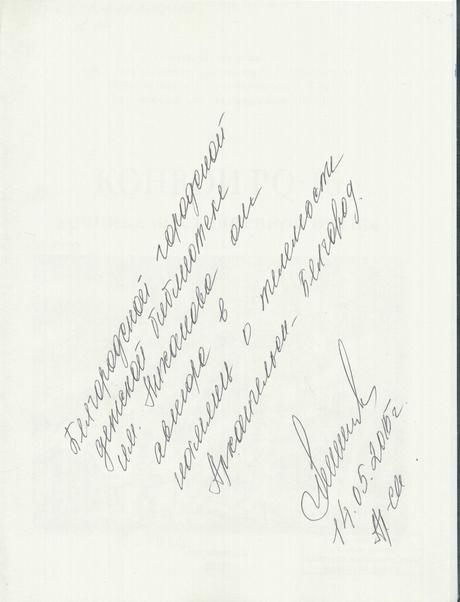 Белгородской городской
детской библиотеке
им. Лиханова от
автора в
память о телемосте
Архангельск – Белгород.
14.05.2015г.